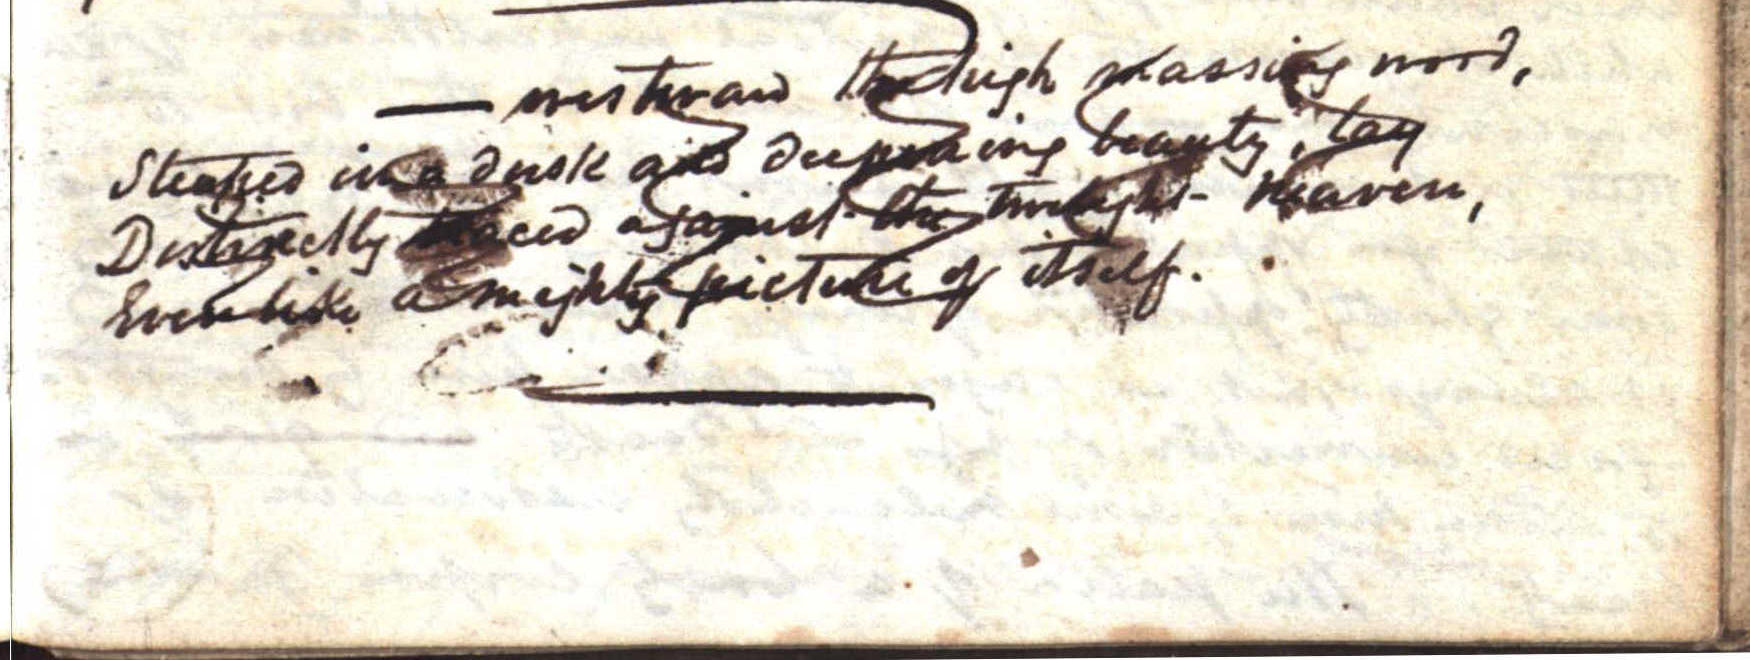 — westward the high massing wood,
Steeped in a dusk and deepening beauty, lay
Distinctly placed against the twilight heaven,
Even like a mighty picture of itself.